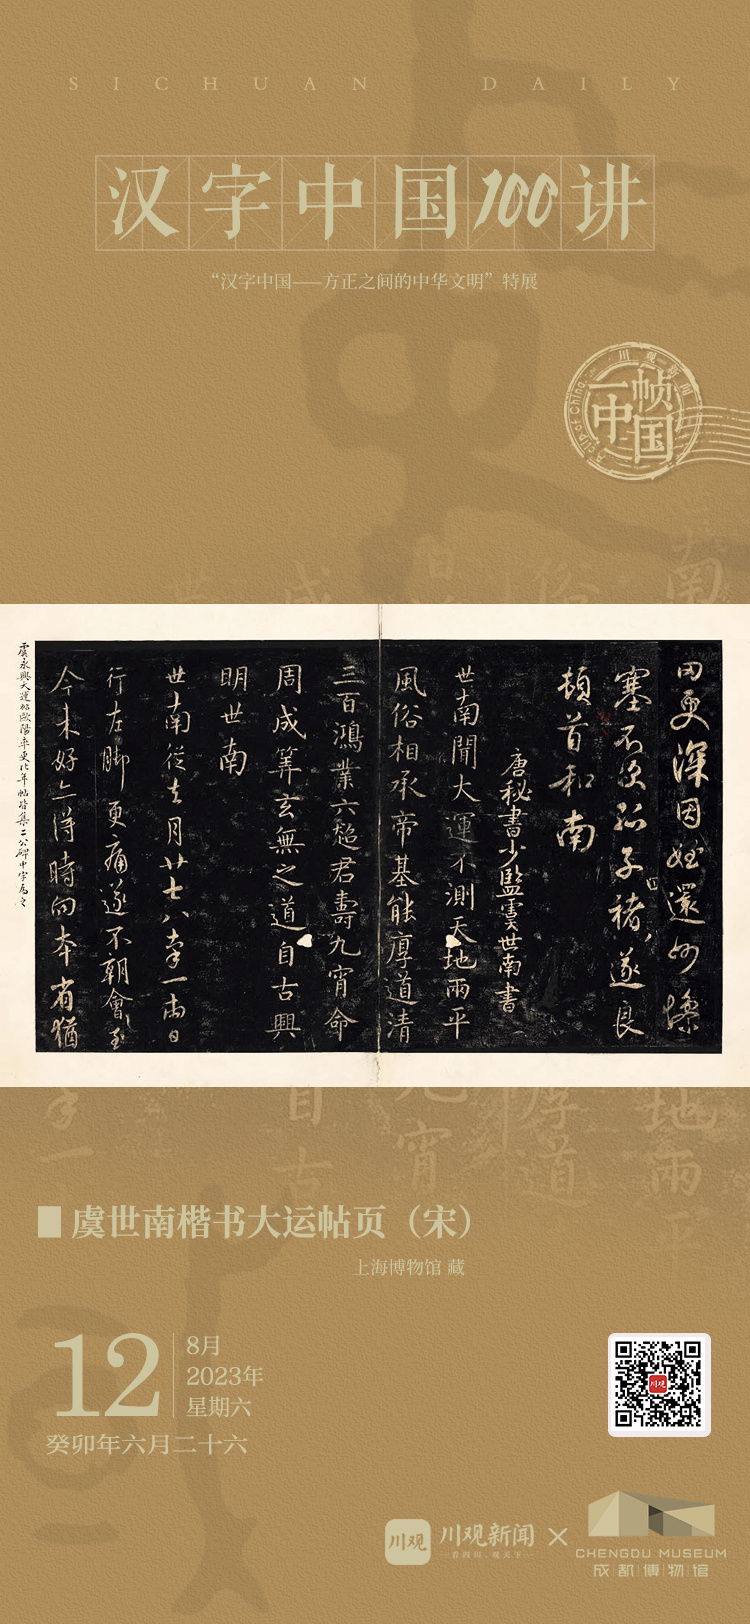 SICHUAN DAILY
汉字中国100讲
“汉字中国——方正之间的中华文明”特展
川观新闻
一帧
中国
A clip of China
因姪還
塞不
子褚遂良
頓首和南
唐秘書少監虞世南書
世南聞大運不測天地兩平
風俗相承帝基能厚道清
三百鴻業六超君壽九宵命
周成筭玄無之道自古興
明世南
世南從去月廿七八率一兩日
行左脚更痛遂不朝會至
今未好亦得時向本省猶
虞永興大運帖歐陽率更比年帖皆集二公碑中字為之
虞世南楷书大运帖页（宋）
上海博物馆 藏
12
8月
2023年
星期六
癸卯年六月二十六
川观
川观
川观新闻
看四川，观天下
CHENGDU MUSEUM
成都博物馆